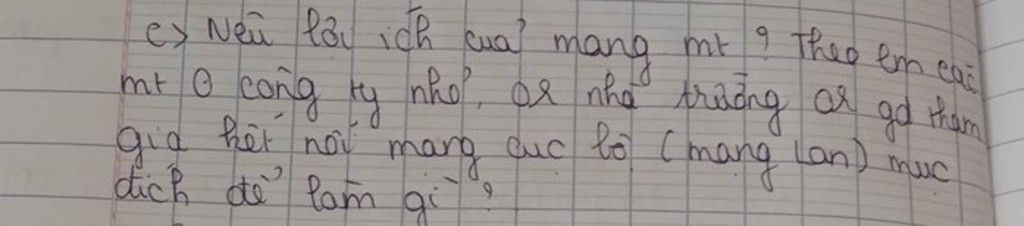 c) Nêu lợi ích của mạng mt ? Theo em các
mt ở công ty nhỏ, or nhà trường or gđ tham
gia kết nối mạng cục bộ (mạng lan) mục
đích để làm gì ?